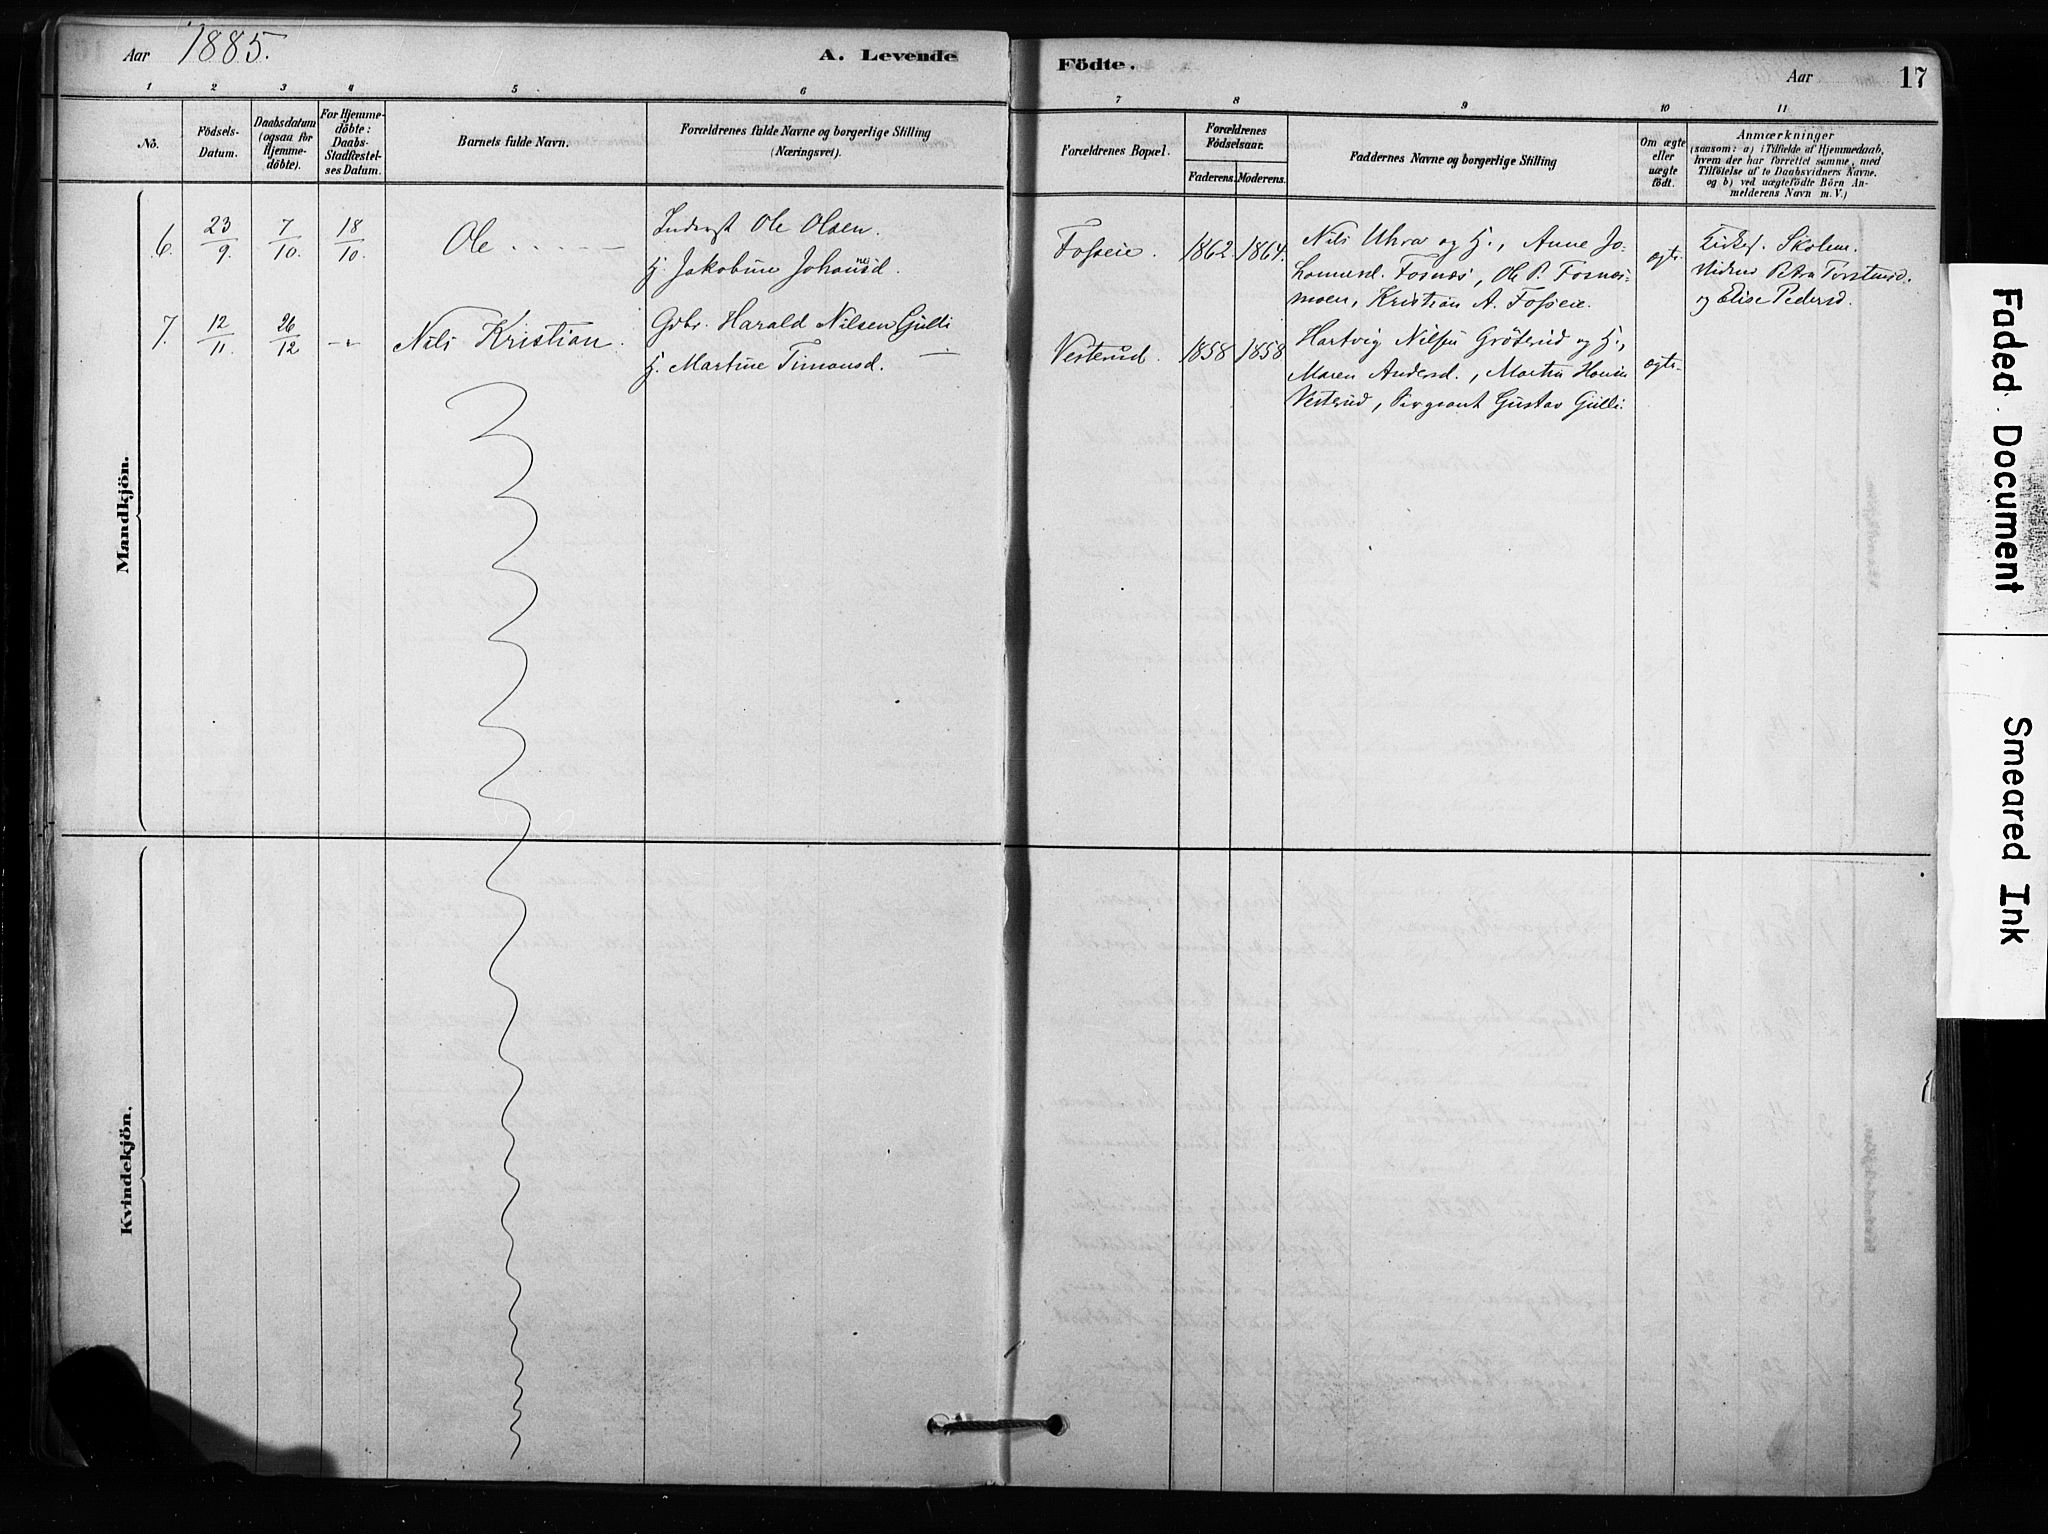 Aar 1885.
A. Levende
Födte.
Aar
17
1
2
3
4
5
6
7
8
9
10
11
No.
Födsels-
Datum.
Daabsdatum
(ogsaa for
Hjemme-
döbte).
For Hjemme-
döbte:
Daabs-
Stadfæstel-
ses Datum.
Barnets fulde Navn.
Forældrenes fulde Navne og borgerlige Stilling
(Næringsvei).
Forældrenes Bopæl.
Forældrenes
Födselsaar.
Faderens.
Moderens.
Faddernes Navne og borgerlige Stilling
Om ægte
eller
uægte
födt.
Anmærkninger
(saasom: a) i Tilfælde af Hjemmedaab,
hvem der har forrettet samme, med
Tilföielse af to Daabsvidners Navne,
og b) ved uægtefödte Börn An-
melderens Navn m. V.)
Mandkjön.
6.
23/9.
7/10.
18/10.
Ole
Inderst Ole Olsen.
H. Jakobine Johansd.
Fosseie.
1862.
1864.
Nils Uhra og H., Anne Jo-
hannesd. Fosnæs, Ole P. Fosnæs-
moen, Kristian A. Fosseie.
ægte.
Skolem.
Petra Torstensd.
og Elise Pedersd.
7.
12/11.
26/12
Nils Kristian.
Gdbr. Harald Nilsen Gulli
H. Martine Timansd.
Vesterud.
1858
1858
Hartvig Nilsen Gröterud og H.,
Maren Andersd., Martin Hansen
Vesterud, Sergeant Gustav Gulli.
ægte.
Kvindekjön.
Faded Document
Smeared Ink